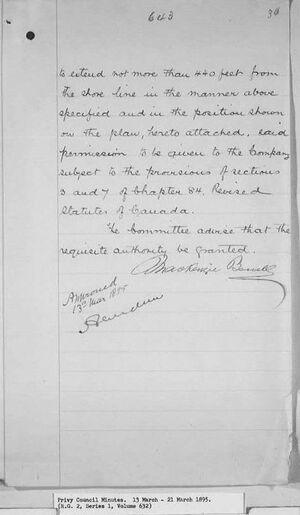 643
36
to extend not more than 440 feet from
the shore line in the manner above
specified and in the position shown
on the plan, hereto attached, said
permission to be given to the Company
subject to the provisions of sections
5 and 7 of Chapter 84, Revised
Statutes of Canada.
The Committee advise that the
requisite authority be granted.
Mackenzie Bowell
Approved
13th Mar 1895
Aberdeen
Privy Council Minutes. 13 March - 21 March 1895.
(R.G. 2, Series 1, Volume 632)